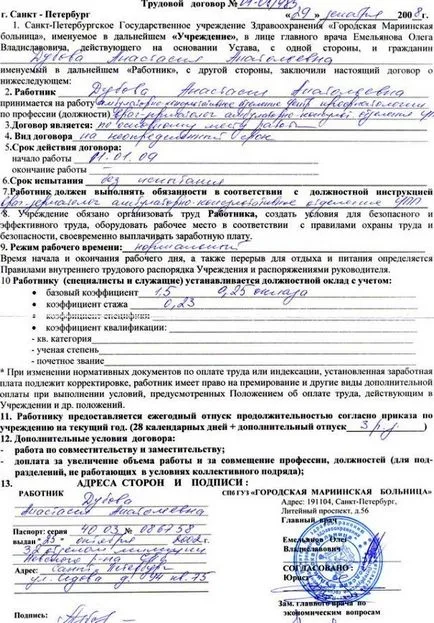 Трудовой договор №
г. Санкт - Петербург «29» декабря 2008г.
1. Санкт-Петербургское Государственное учреждение Здравоохранения «Городская Мариинская
больница», именуемое в дальнейшем «Учреждение», в лице главного врача Емельянова Олега
Владиславовича, действующего на основании Устава, с одной стороны, и гражданин
Дубова Анастасия Анатольевна
именуемый в дальнейшем «Работник», с другой стороны, заключили настоящий договор о
нижеследующем:
2. Работник Дубова Анастасия Анатольевна
принимается на работу
по профессии (должности)
3.Договор является: по основному месту работы
4. Вид договора на неопределенный срок
5.Срок действия договора:
начало работы 01.01.09
окончание работы
6.Срок испытания без испытания
7.Работник должен выполнять обязанности в соответствии с должностной инструкцией
8. Учреждение обязано организовать труд Работника, создать условия для безопасного и
эффективного труда, оборудовать рабочее место в соответствии с правилами охраны труда и
безопасности, своевременно выплачивать заработную плату.
9. Режим рабочего времени:
Время начала и окончания рабочего дня, а также перерыв для отдыха и питания определяется
Правилами внутреннего трудового распорядка Учреждения и распоряжениями руководителя.
10 Работнику (специалисты и служащие) устанавливается должностной оклад с учетом:
• базовый коэффициент 1.5 0,25 оклада
• коэффициент стажа 0,23
• коэффициент специфики
• коэффициент квалификации:
- кв. категория
- ученая степень
- почетное звание
* При изменении нормативных документов по оплате труда или индексации, установленная заработная
плата подлежит корректировке, работник имеет право на премирование и другие виды дополнительной
оплаты при выполнении условий, предусмотренных Положением об оплате труда, действующим в
Учреждении и др. положений.
11. Работнику предоставляется ежегодный отпуск продолжительностью согласно приказа по
учреждению на текущий год. (28 календарных дней + дополнительный отпуск )
12. Дополнительные условия договора:
- работа по совместительству и заместительству;
- доплата за увеличение объема работы и за совмещение профессии, должностей (для под-
разделений, не работающих в условиях коллективного подряда);
13. АДРЕСА СТОРОН И ПОДПИСИ :
РАБОТНИК СПб ГУЗ «ГОРОДСКАЯ МАРИИНСКАЯ БОЛЬНИЦА»
Дубова Адрес: 191104, Санкт-Петербург,
Анастасия Анатольевна Литейный проспект, д.56
Главный врач
Паспорт: серия 40 03 № 086758
выдан «25» октября 2002г. Емельянов Олег
32 отделом милиции Владиславович
Невского р-на СПб
Адрес: Санкт Петербург СОГЛАСОВАНО :
ул. Седова д. кв. 75 Юрист
Зам. главного врача по
экономическим вопросам
Подпись: